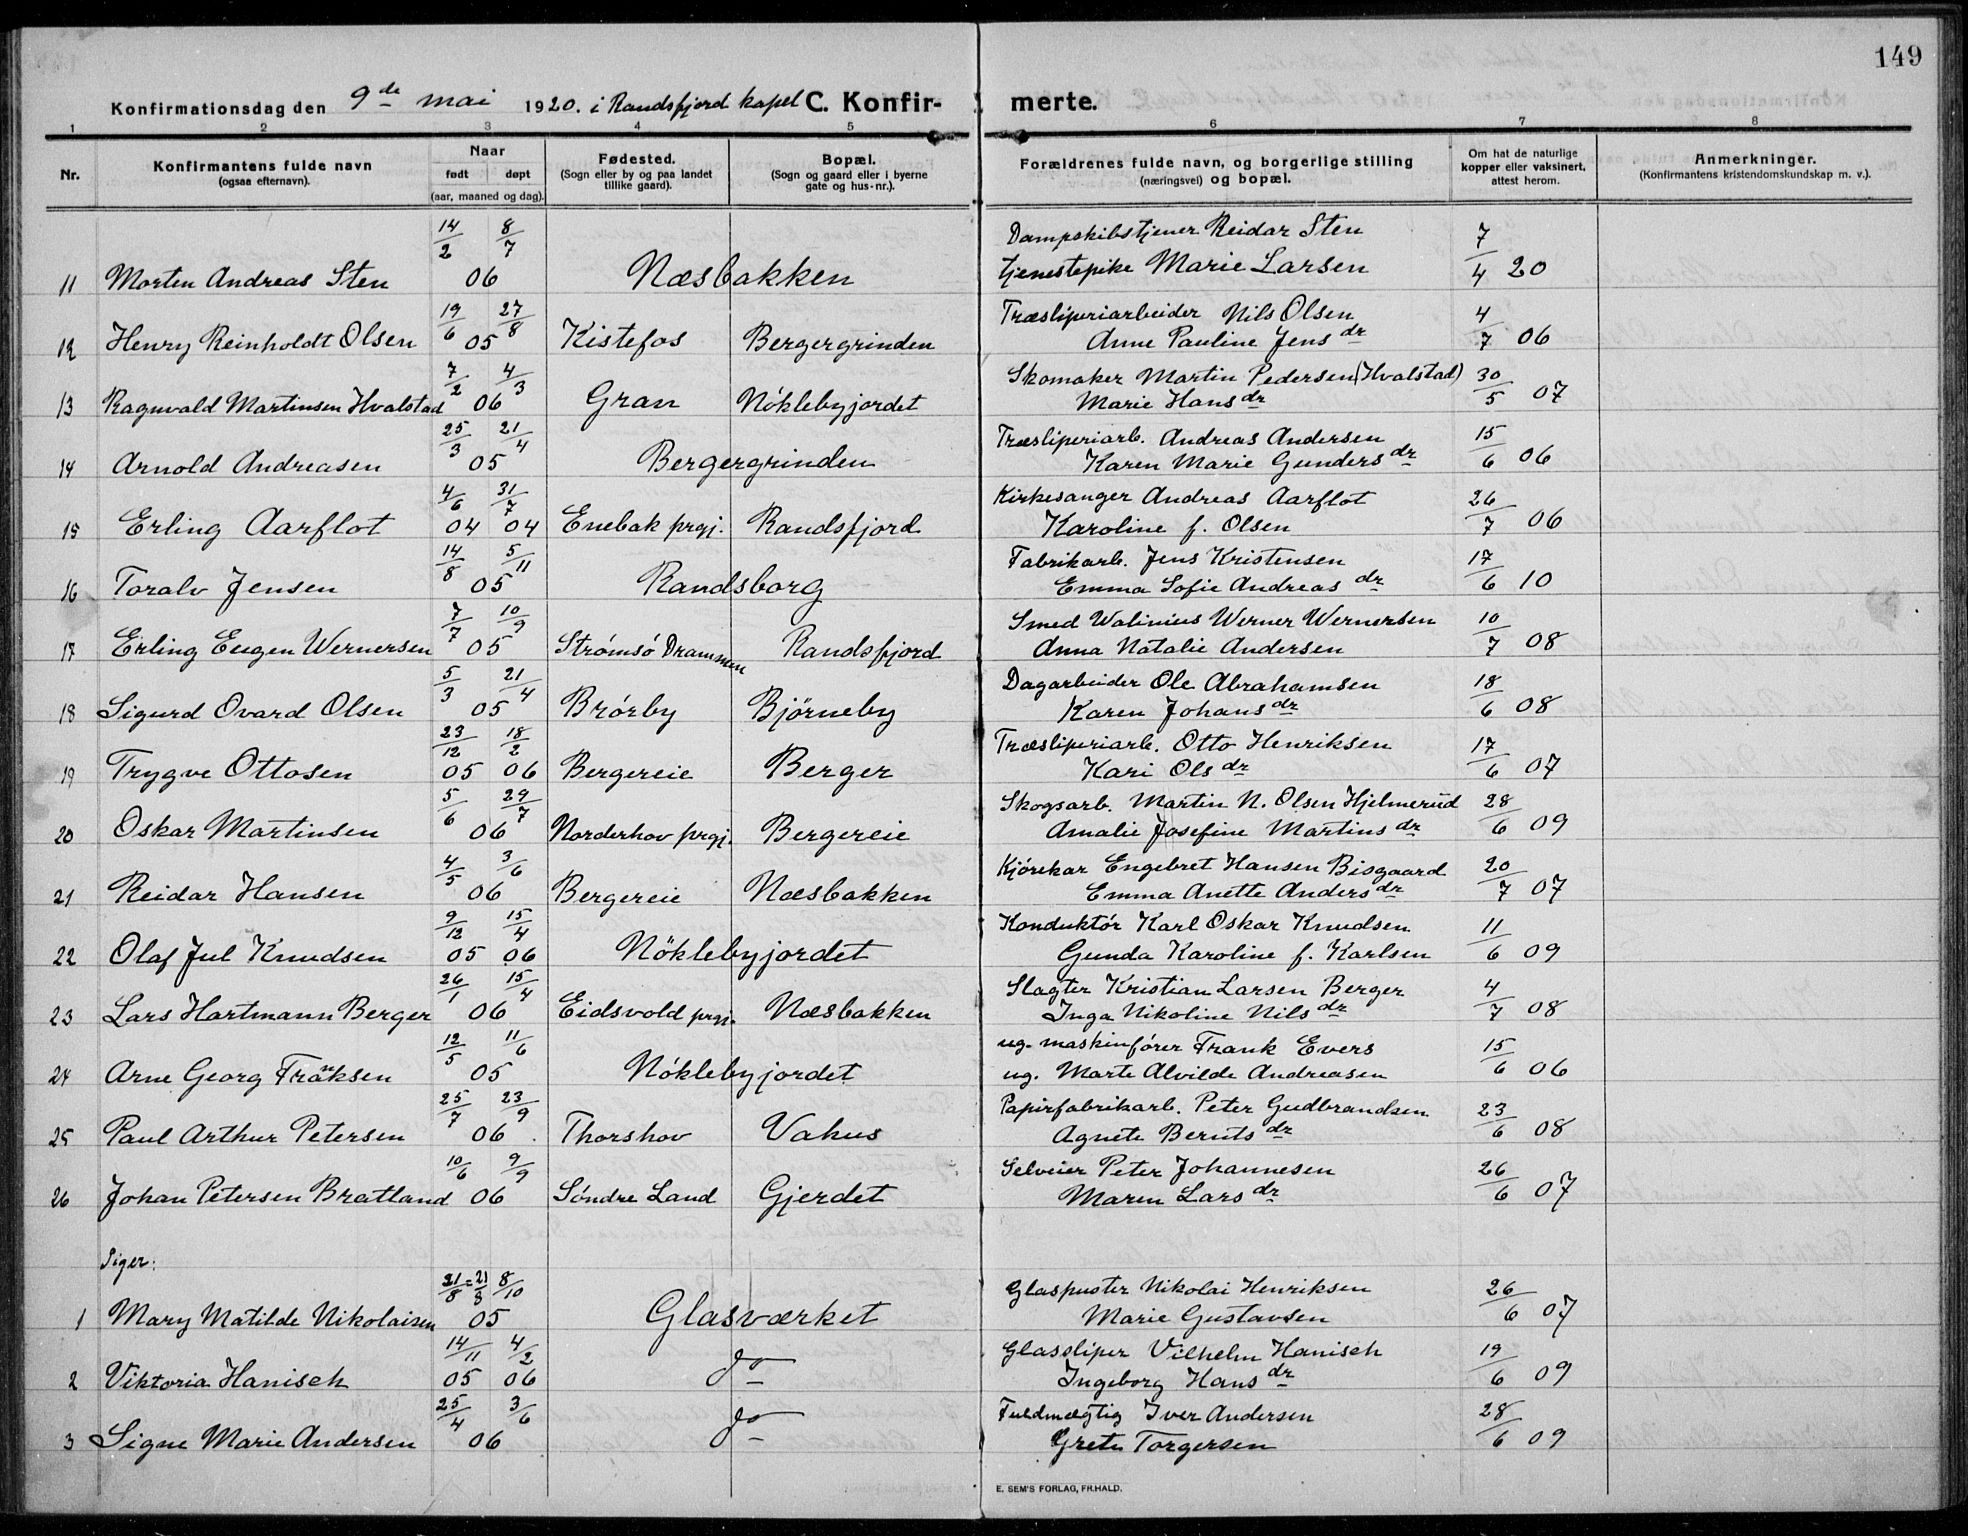 149
Konfirmationsdag den 9de mai 1920. i Randsfjord kapel C. Konfir- merte.
1 2 3 4 5 6 7 8
Nr. Konfirmantens fulde navn (ogsaa efternavn). Naar født døpt (aar, maaned og dag). Fødested. (Sogn eller by og paa landet tillike gaard). Bopæl. (Sogn og gaard eller i byerne gate og hus-nr.). Forældrenes fulde navn, og borgerlige stilling (næringsvei) og bopæl. Om hat de naturlige kopper eller vaksinert, attest herom. Anmerkninger. (Konfirmantens kristendomskundskap m. v.).
14/2 8/7 Dampskibstjener Reidar Sten 7/4 20
11 Morten Andreas Sten 06 Næsbakken tjenestepike Marie Larsen
19/6 27/8 Træsliperiarbeider Nils Olsen 4/7 06
12 Henry Reinholdt Olsen 05 Kistefos Bergergrinden Anne Pauline Jensdr
7/2 4/3 Skomaker Martin Pedersen (Hvalstad) 30/5 07
13 Ragnvald Martinsen Hvalstad 06 Gran Nöklebyjordet Marie Hansdr
25/3 21/4 Træsliperiarb. Andreas Andersen 15/6 06
14 Arnold Andreasen 05 Bergergrinden Karen Marie Gundersdr
4/6 31/7 Kirkesanger Andreas Aarflot 26/7 06
15 Erling Aarflot 04 04 Enebak prgj. Randsfjord Karoline f. Olsen
14/8 5/11 Fabrikarb. Jens Kristensen 17/6 10
16 Toralv Jensen 05 Randsborg Emma Sofie Andreasdr
7/7 10/9 Smed Walinius Werner Wernersen 10/7 08
17 Erling Eugen Wernersen 05 Strømsö Drammen Randsfjord Anna Natalie Andersen
5/3 21/4 Dagarbeider Ole Abrahamsen 18/6 08
18 Sigurd Ovard Olsen 05 Brörby Björneby Karen Johansdr
23/12 18/2 Træsliperiarb. Otto Henriksen 17/6 07
19 Trygve Ottosen 05 06 Bergereie Berger Kari Olsdr
5/6 29/7 Skogsarb. Martin N. Olsen Hjelmerud 28/6 09
20 Oskar Martinsen 06 Norderhov prgj. Bergereie Amalie Josefine Martinsdr
4/5 3/6 Kjörekar Engebret Hansen Bisgaard 20/7 07
21 Reidar Hansen 06 Bergereie Næsbakken Emma Anette Andersdr
9/12 15/4 Konduktör Karl Oskar Knudsen 11/6 09
22 Olaf Jul Knudsen 05 06 Nöklebyjordet Gunda Karoline f. Karlsen
26/1 15/4 Slagter Kristian Larsen Berger 4/7 08
23 Lars Hartmann Berger 06 Eidsvold prgj. Næsbakken Inga Nikoline Nilsdr
12/5 11/6 ug. maskinförer Frank Evers 15/6 06
24 Arne Georg Franksen 05 Nöklebyjordet ug. Marte Alvilde Andreasen
25/7 23/9 Papirfabrikarb. Peter Gudbrandsen 23/6 08
25 Paul Arthur Petersen 06 Thorshov Vahus Agnete Berntsdr
10/6 9/9 Selveier Peter Johannesen 26/6 07
26 Johan Petersen Bratland 06 Söndre Land Gjerdet Maren Larsdr
Piger:
21/8 = 21/8 8/10 Glaspuster Nikolai Henriksen 26/6 07
1 Mary Matilde Nikolaisen 05 Glasværket Marie Gustavsen
14/11 4/2 Glassliper Vilhelm Hanisch 19/6 09
2 Viktoria Hanisch 05 06 do Ingeborg Hansdr
25/4 3/6 Fuldmægtig Iver Andersen 28/6 09
3 Signe Marie Andersen 06 do Grete Torgersen
E. SEM'S FORLAG, FR.HALD.